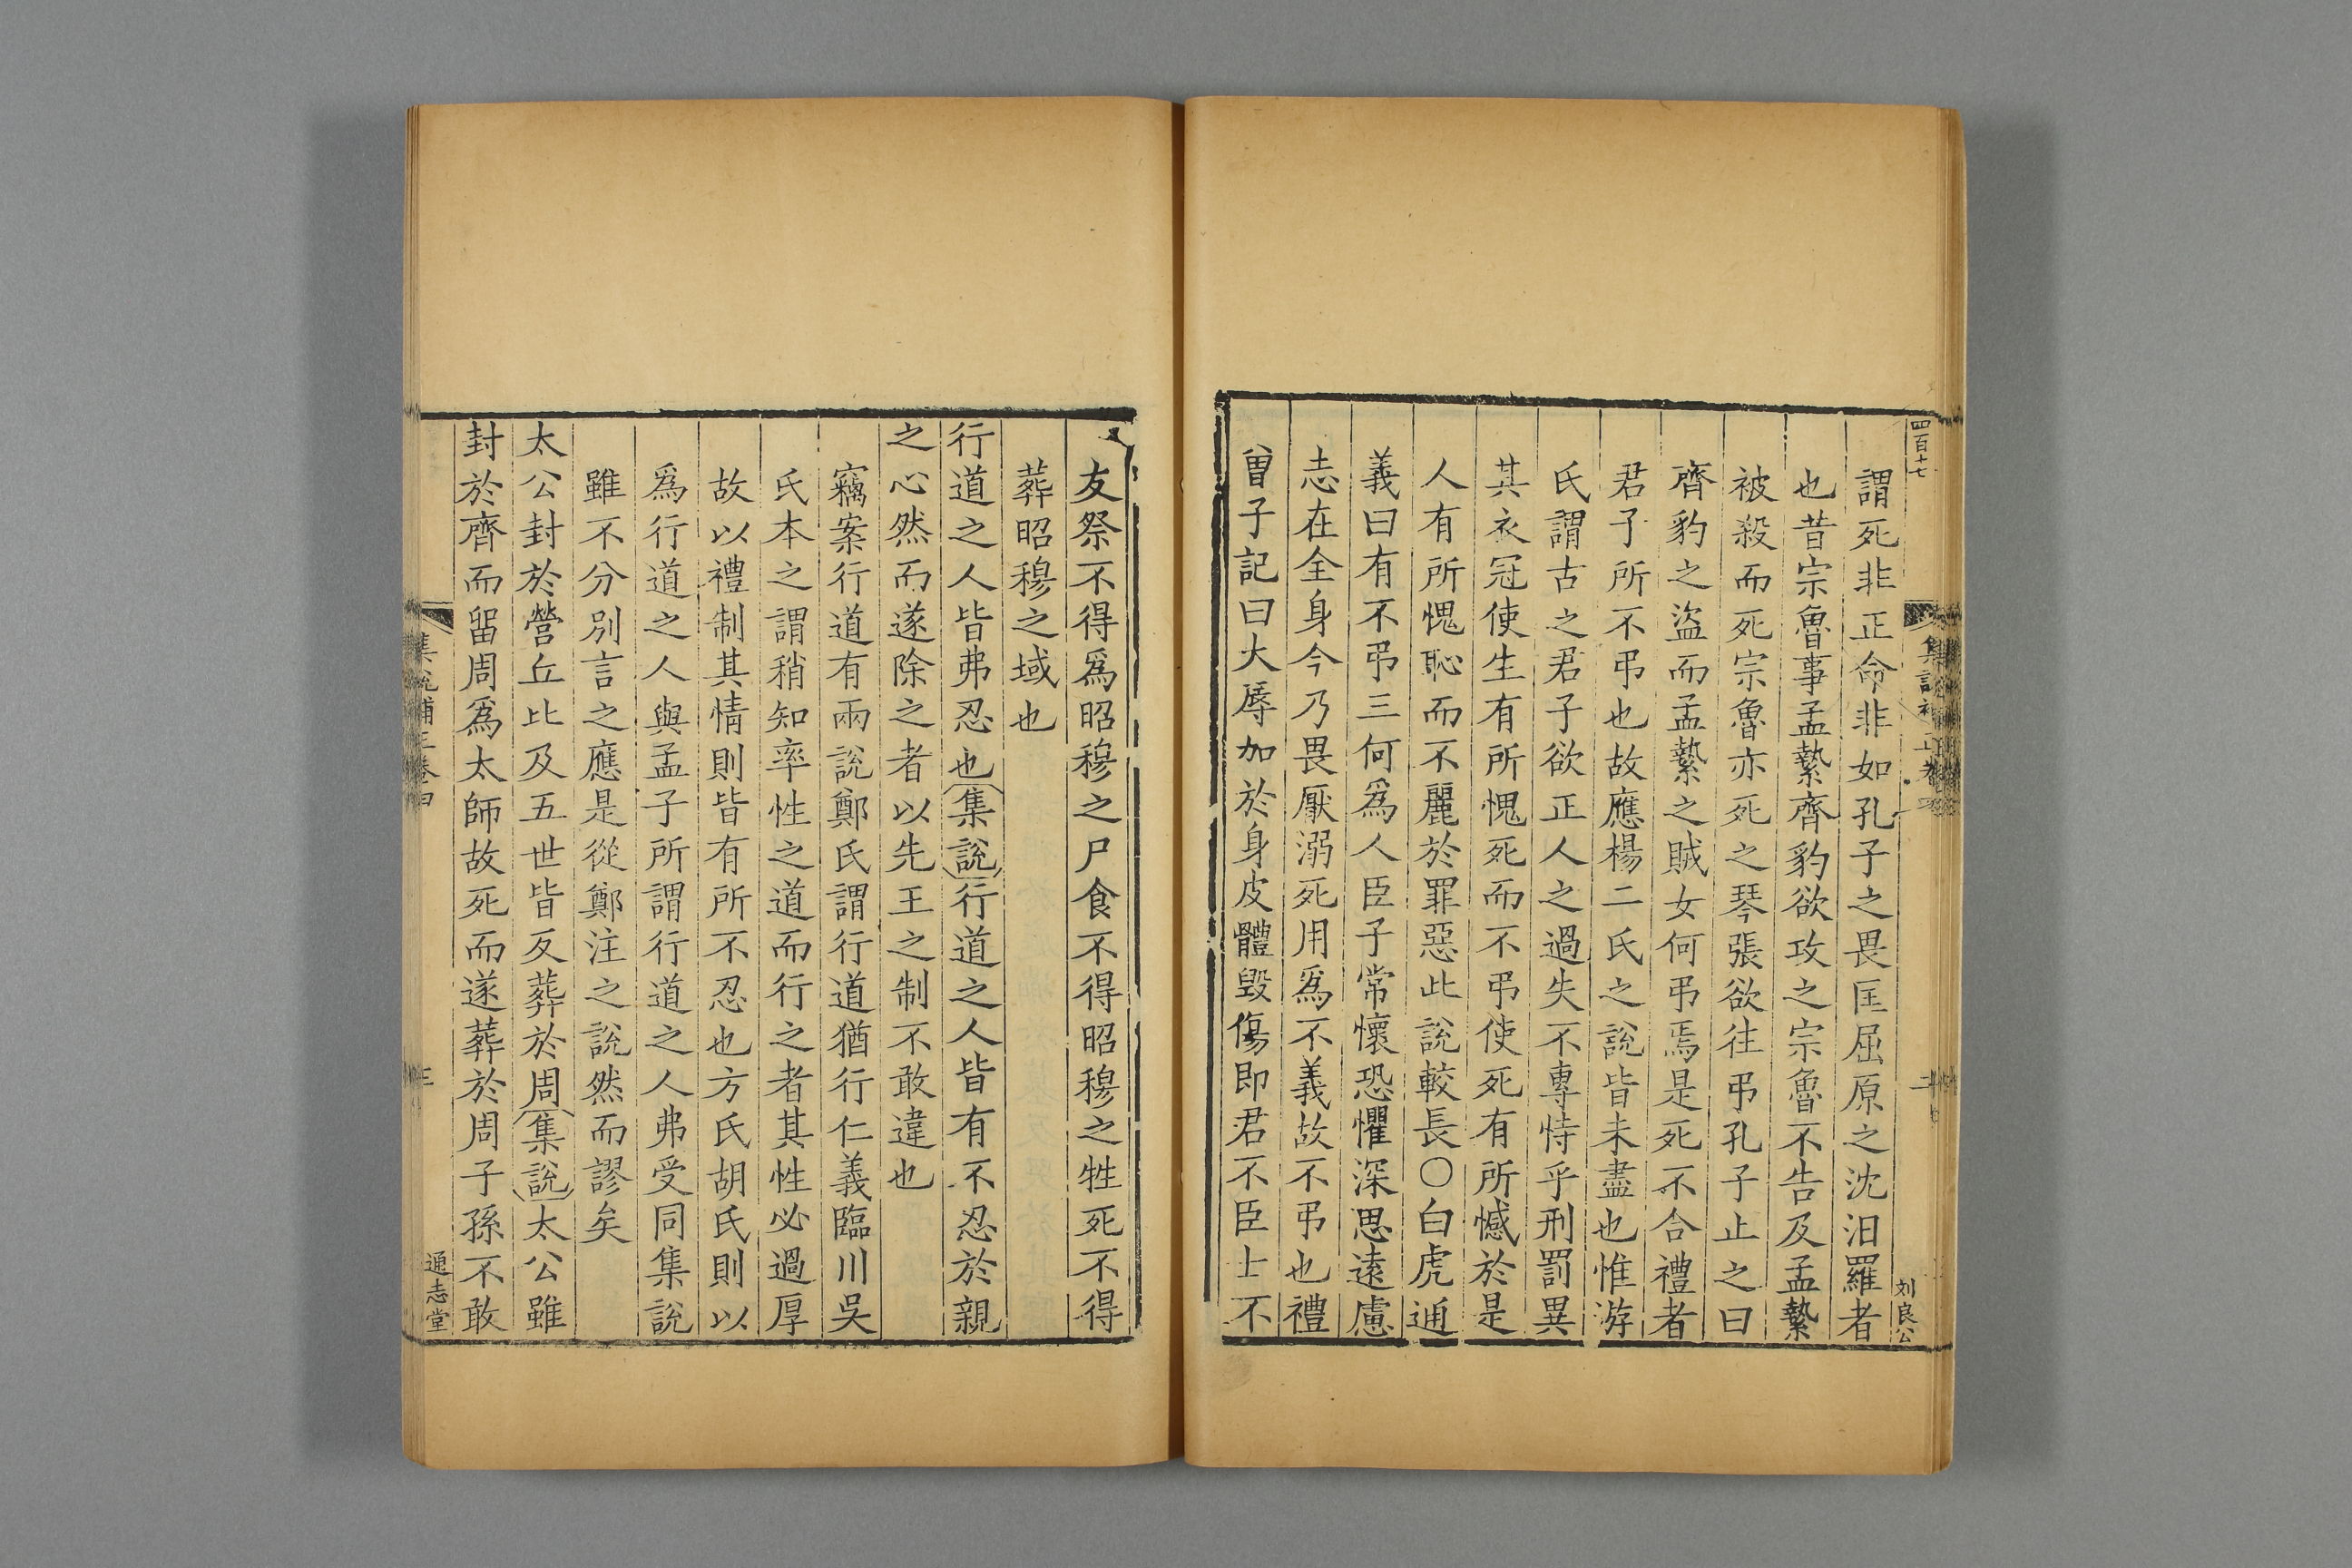 四百十七
集説補正卷
二
刘良公
謂死非正命非如孔子之畏匡屈原之沈汨羅者
也昔宗魯事孟縶齊豹欲攻之宗魯不告及孟縶
被殺而死宗魯亦死之琴張欲往弔孔子止之曰
齊豹之盜而孟縶之賊女何弔焉是死不合禮者
君子所不弔也故應楊二氏之說皆未盡也惟游
氏謂古之君子欲正人之過失不專恃乎刑罰異
其衣冠使生有所愧死而不弔使死有所憾於是
人有所愧恥而不麗於罪惡此說較長〇白虎通
義曰有不弔三何爲人臣子常懷恐懼深思遠慮
志在全身今乃畏厭溺死用爲不義故不弔也禮
曾子記曰大辱加於身皮體毀傷即君不臣士不
友祭不得爲昭穆之尸食不得昭穆之牲死不得
葬昭穆之域也
行道之人皆弗忍也集說行道之人皆有不忍於親
之心然而遂除之者以先王之制不敢違也
竊案行道有兩說鄭氏謂行道猶行仁義臨川吳
氏本之謂稍知率性之道而行之者其性必過厚
故以禮制其情則皆有所不忍也方氏胡氏則以
爲行道之人與孟子所謂行道之人弗受同集說
雖不分別言之應是從鄭注之說然而謬矣
太公封於營丘比及五世皆反葬於周集說太公雖
封於齊而留周爲太師故死而遂葬於周子孫不敢
集說補正卷四
三
通志堂